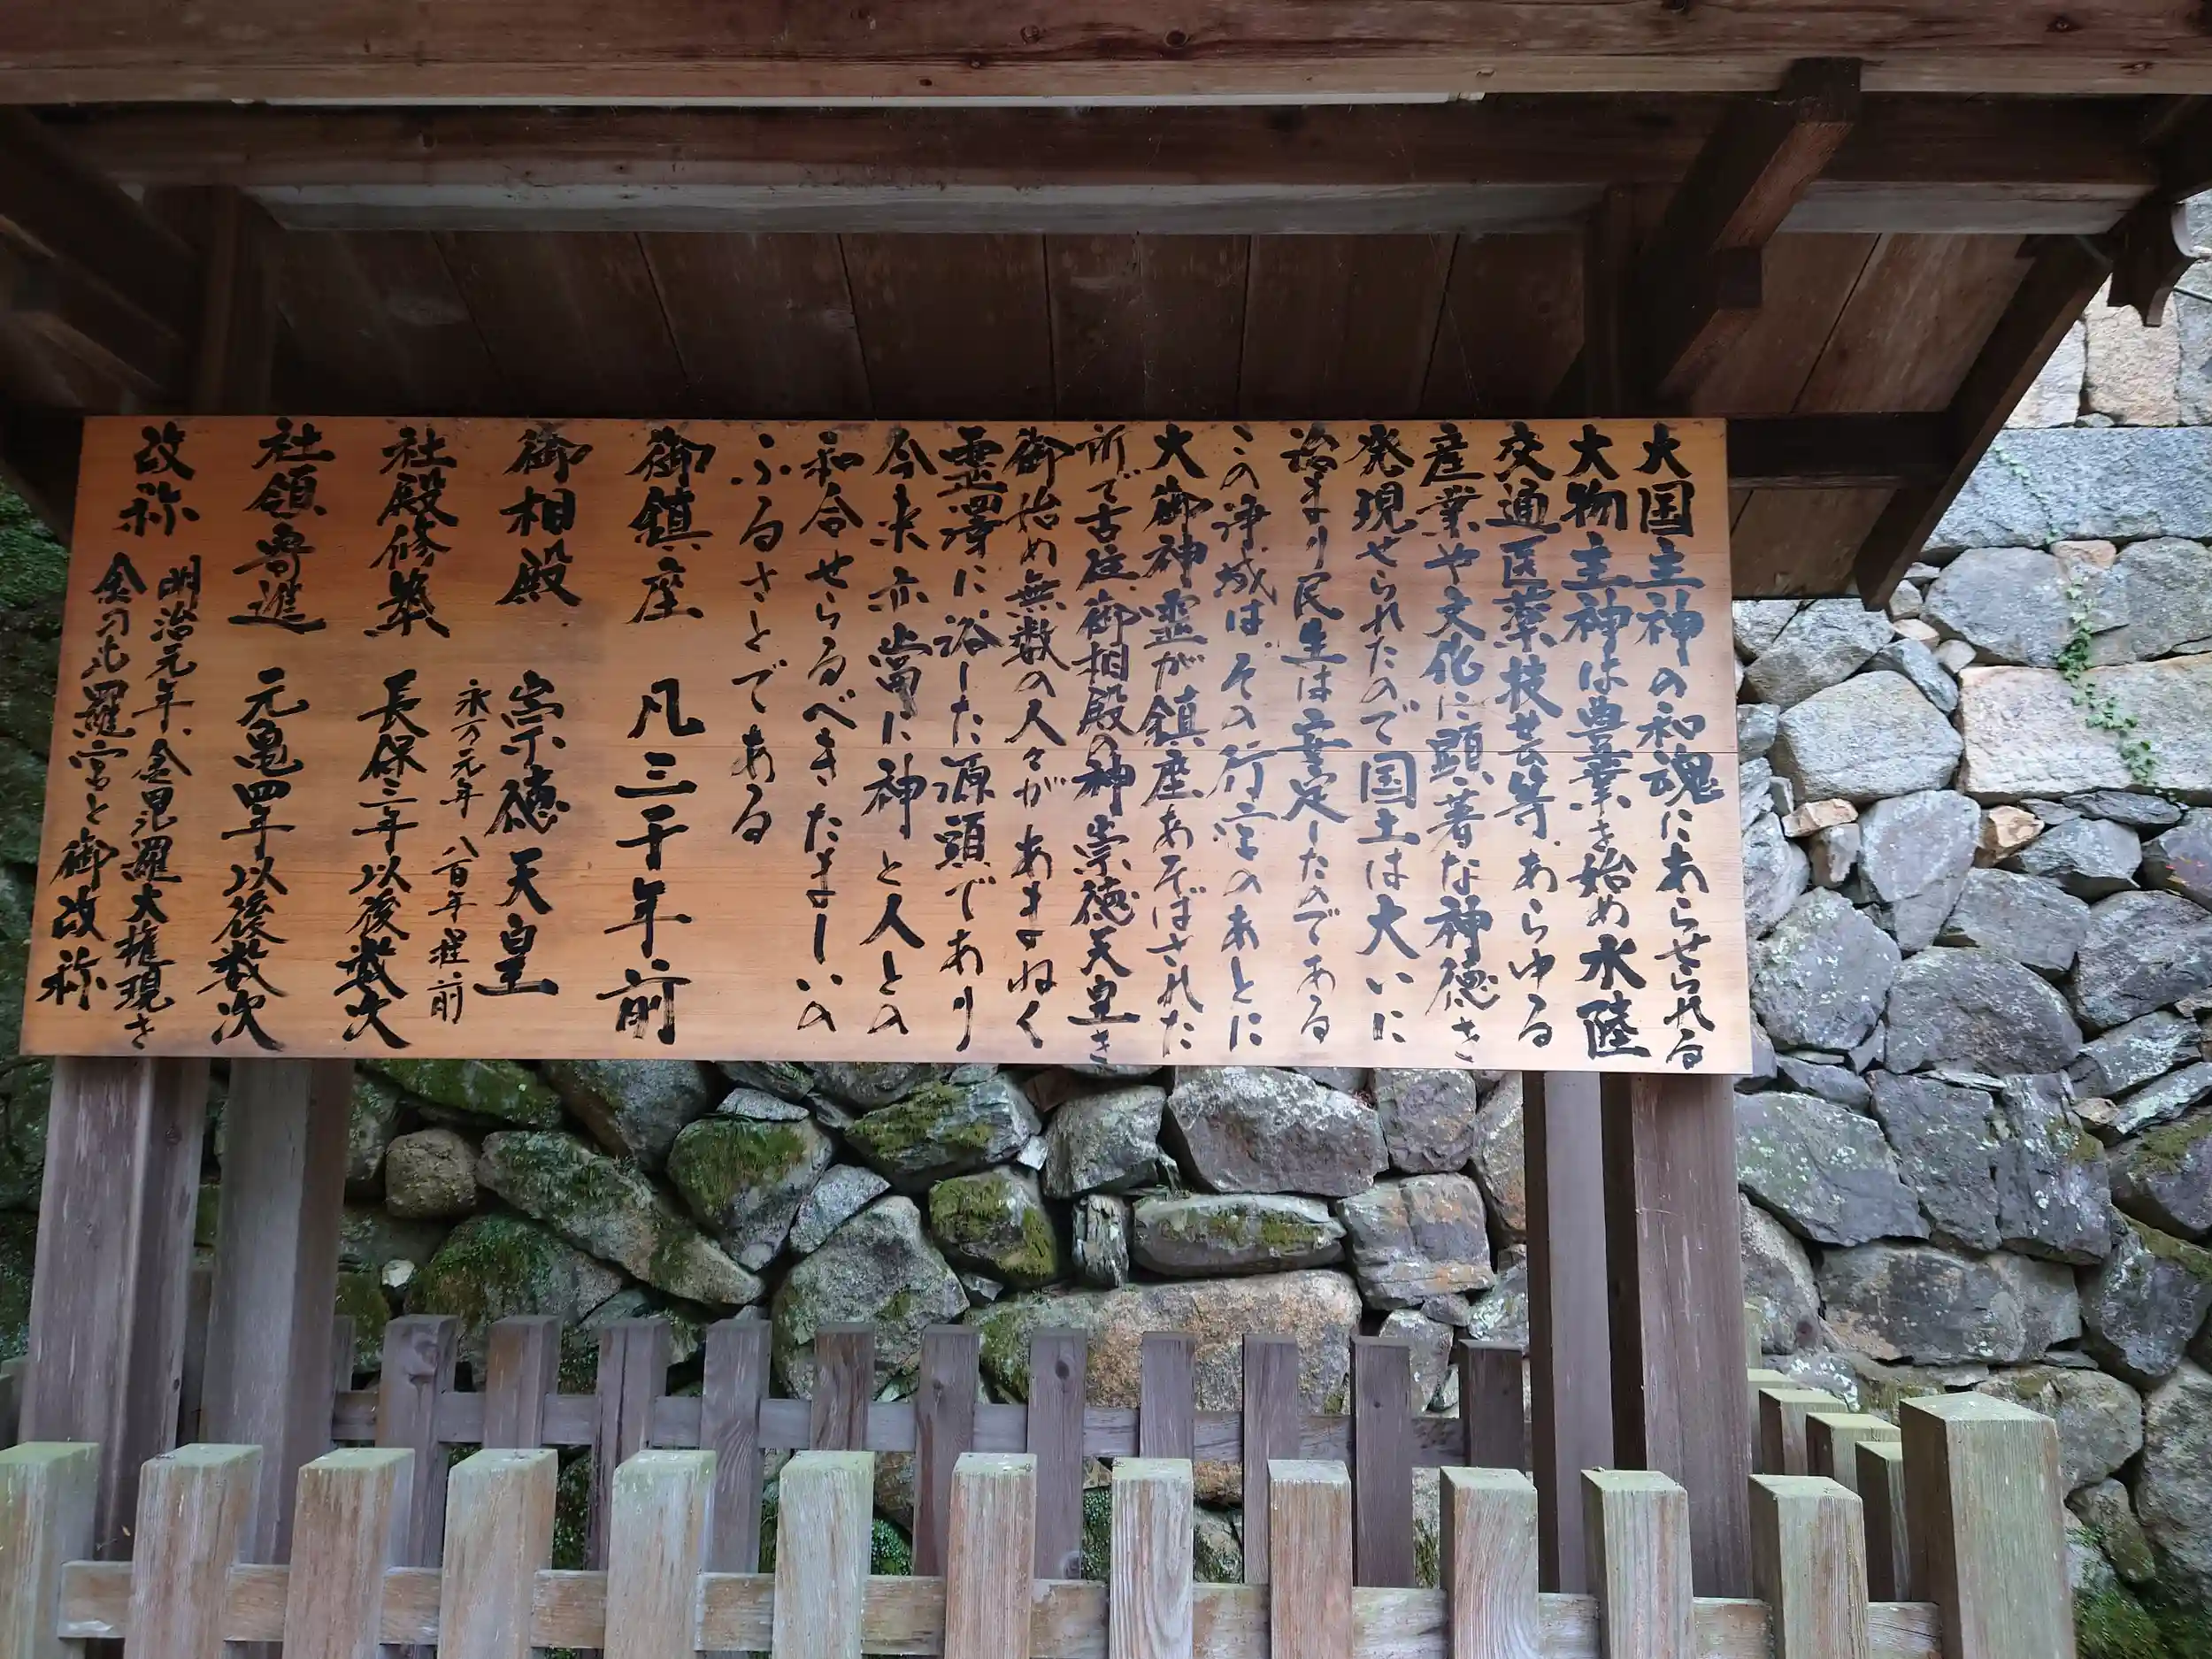 大国主神の和魂にあらせられる
大物主神は農業を始め水陸
交通医薬技芸等あらゆる
産業や文化に顕著な神徳を
発現せられたので国土は大いに
治まり民生は安定したのである
この浄域はその行宮のあとに
大御神霊が鎮座あそばされた
所で古往御相殿の神崇徳天皇を
御始め無数の人々があまねく
霊澤に浴した源頭であり
今来亦當に神と人との
和合せらるべきたましいの
ふるさとである
御鎮座 凡三千年前
御相殿 崇徳天皇
永万元年 八百年程前
社殿修築 長保三年以後数次
社領寄進 元亀四年以後数次
改称 明治元年、金毘羅大権現を
金刀比羅宮と御改称